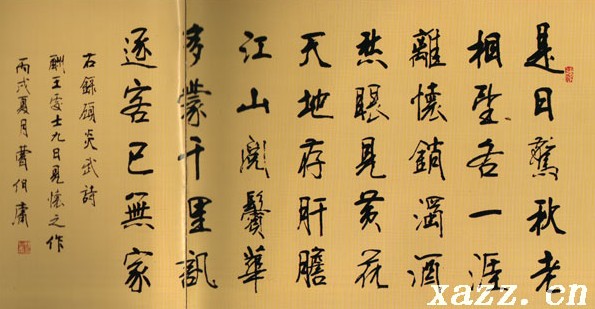 是日驚秋老
相望各一涯
離懷銷濁酒
愁眼見黃花
天地存肝膽
江山閱鬢華
多蒙千里訊
逐客已無家
右錄顧炎武詩
酬王處士九日見懷之作
丙戌夏月曹伯庸
xazz.cn